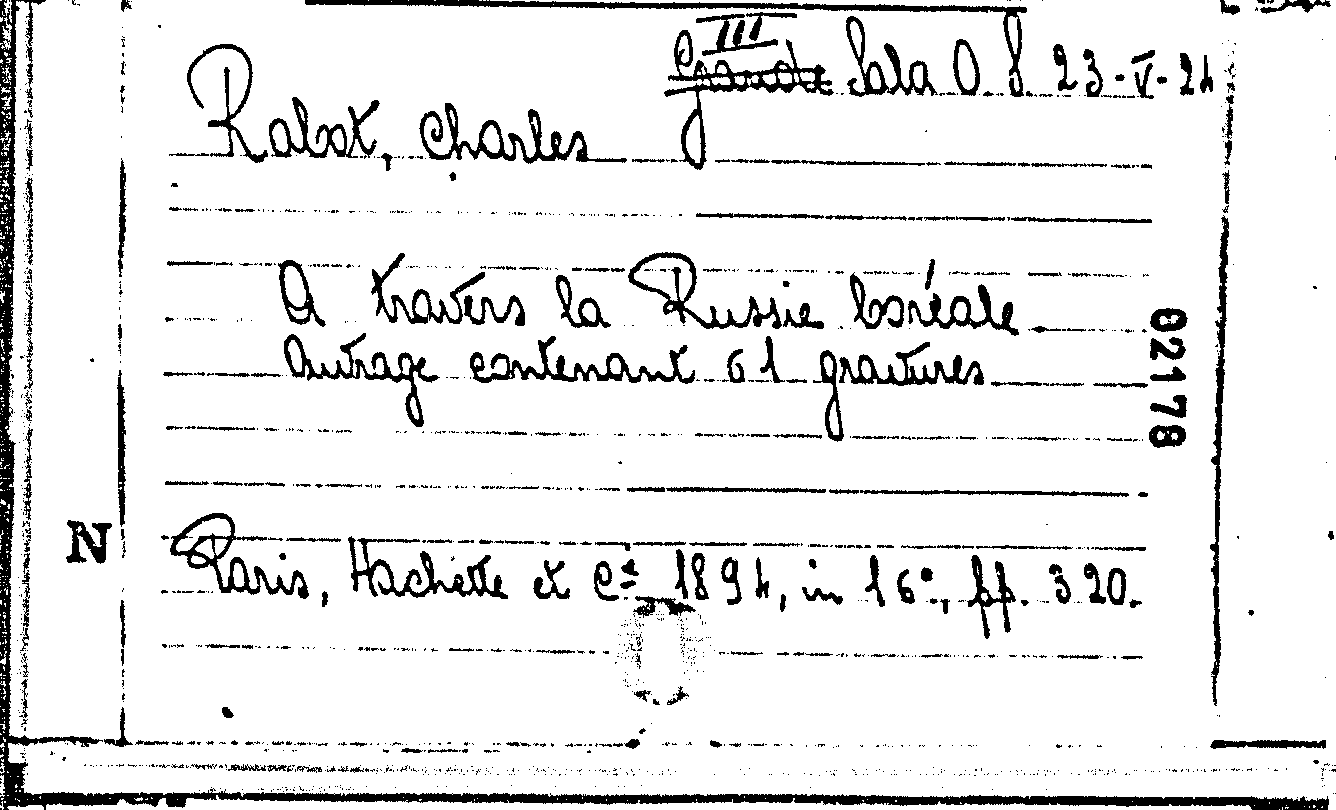 III
Grande Sala O. S. 23-V-24
Rabot, Charles
A travers la Russie boréale
Ouvrage contenant 61 gravures
02178
N
Paris, Hachette et C.ie 1894, in 16°, pp. 320.